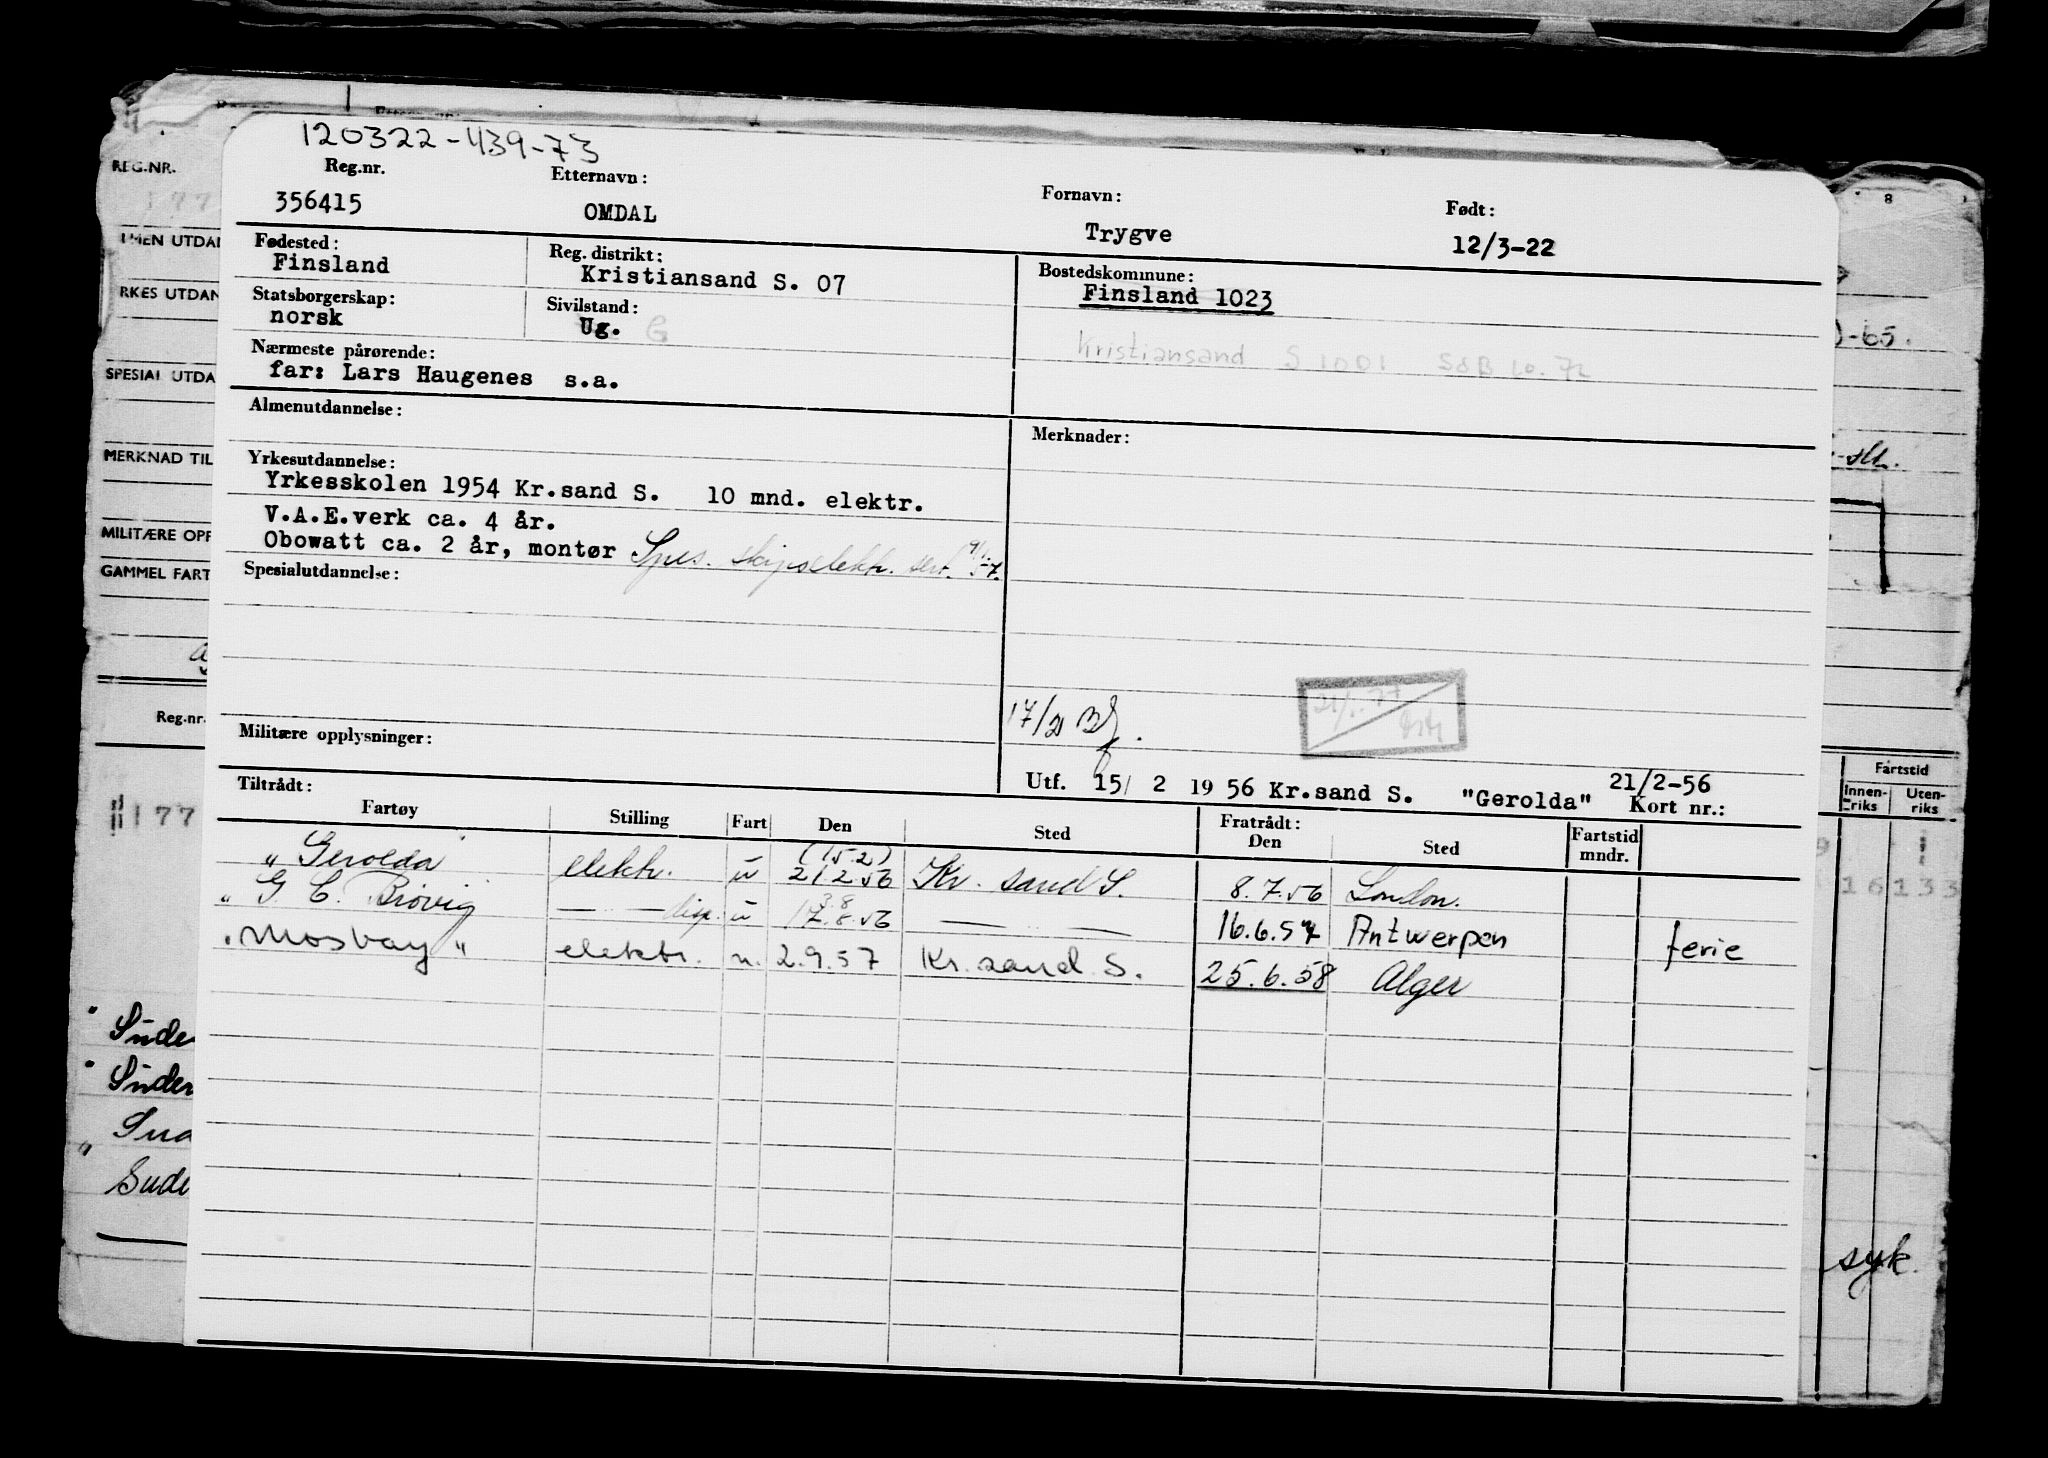 120322-439-73
Reg.nr. Etternavn: Fornavn: Født:
356415 OMDAL Trygve 12/3-22
Fødested: Reg. distrikt: Bostedskommune:
Finsland Kristiansand S. 07 Finsland 1023
Statsborgerskap: Sivilstand:
norsk Ug. G
Kristiansand S 1001 SdB 10.72
Nærmeste pårørende:
far: Lars Haugenes s.a.
Almenutdannelse: Merknader:
Yrkesutdannelse:
Yrkesskolen 1954 Kr.sand S. 10 mnd. elektr.
V.A.E.verk ca. 4 år.
Obowatt ca. 2 år, montør Spes. skipselektr. sert.
Spesialutdannelse:
Militære opplysninger:
Utf. 15/ 2 19 56 Kr.sand S. "Gerolda" 21/2-56 Kort nr.:
Tiltrådt: Fratrådt:
Fartøy Stilling Fart Den Sted Den Sted Fartstid mndr.
"Gerolda" elektr. u (15.2) 21 2 56 Kr. sand S. 8.7.56 London.
"G. C. Brøvig — — disp. u 17.8.56 — — 16.6.57 Antwerpen ferie
"Mosbay" elektr. u. 2.9.57 Kr. sand. S. 25.6.58 Alger
REG.NR.
177
MERKNAD TIL
GAMMEL FART
Reg.nr.
177
Süde
Süder
Sude
-65.
Fartstid
Innen-
riks
Uten-
riks
16 133
syk.